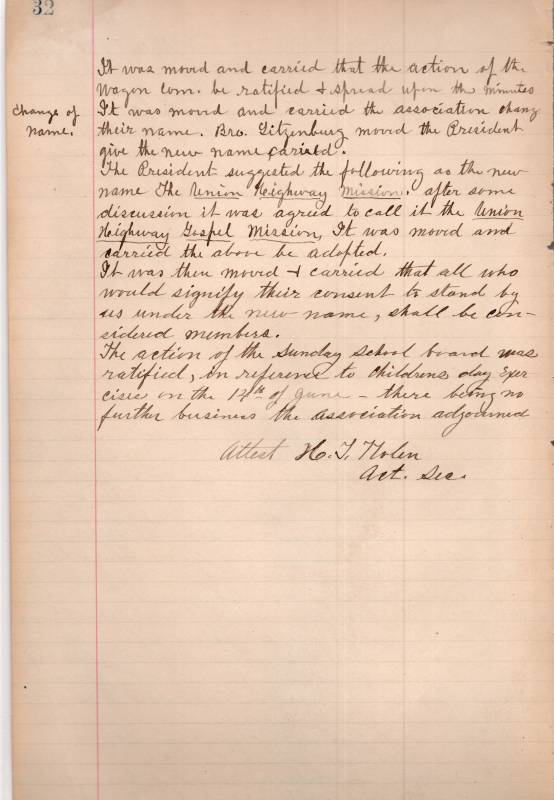 32
It was moved and carried that the action of the
Wagon Com. be ratified & spread upon the minutes
Change of
name.
It was moved and carried the association change
their name. Bro. Litzenburg moved the President
give the new name, caried.
The President suggested the following as the new
name The Union Highway Mission. after some
discussion it was agreed to call it the Union
Highway Gospel Mission, It was moved and
carried the above be adopted.
It was then moved & carried that all who
would signify their consent to stand by
us under the new name, shall be con-
sidered members.
The action of the Sunday School board was
ratified, in reference to Childrens day Exer
cises on the 14th of June - there being no
further business the association adjourned
Attest H. T. Nolen
Act. Sec.